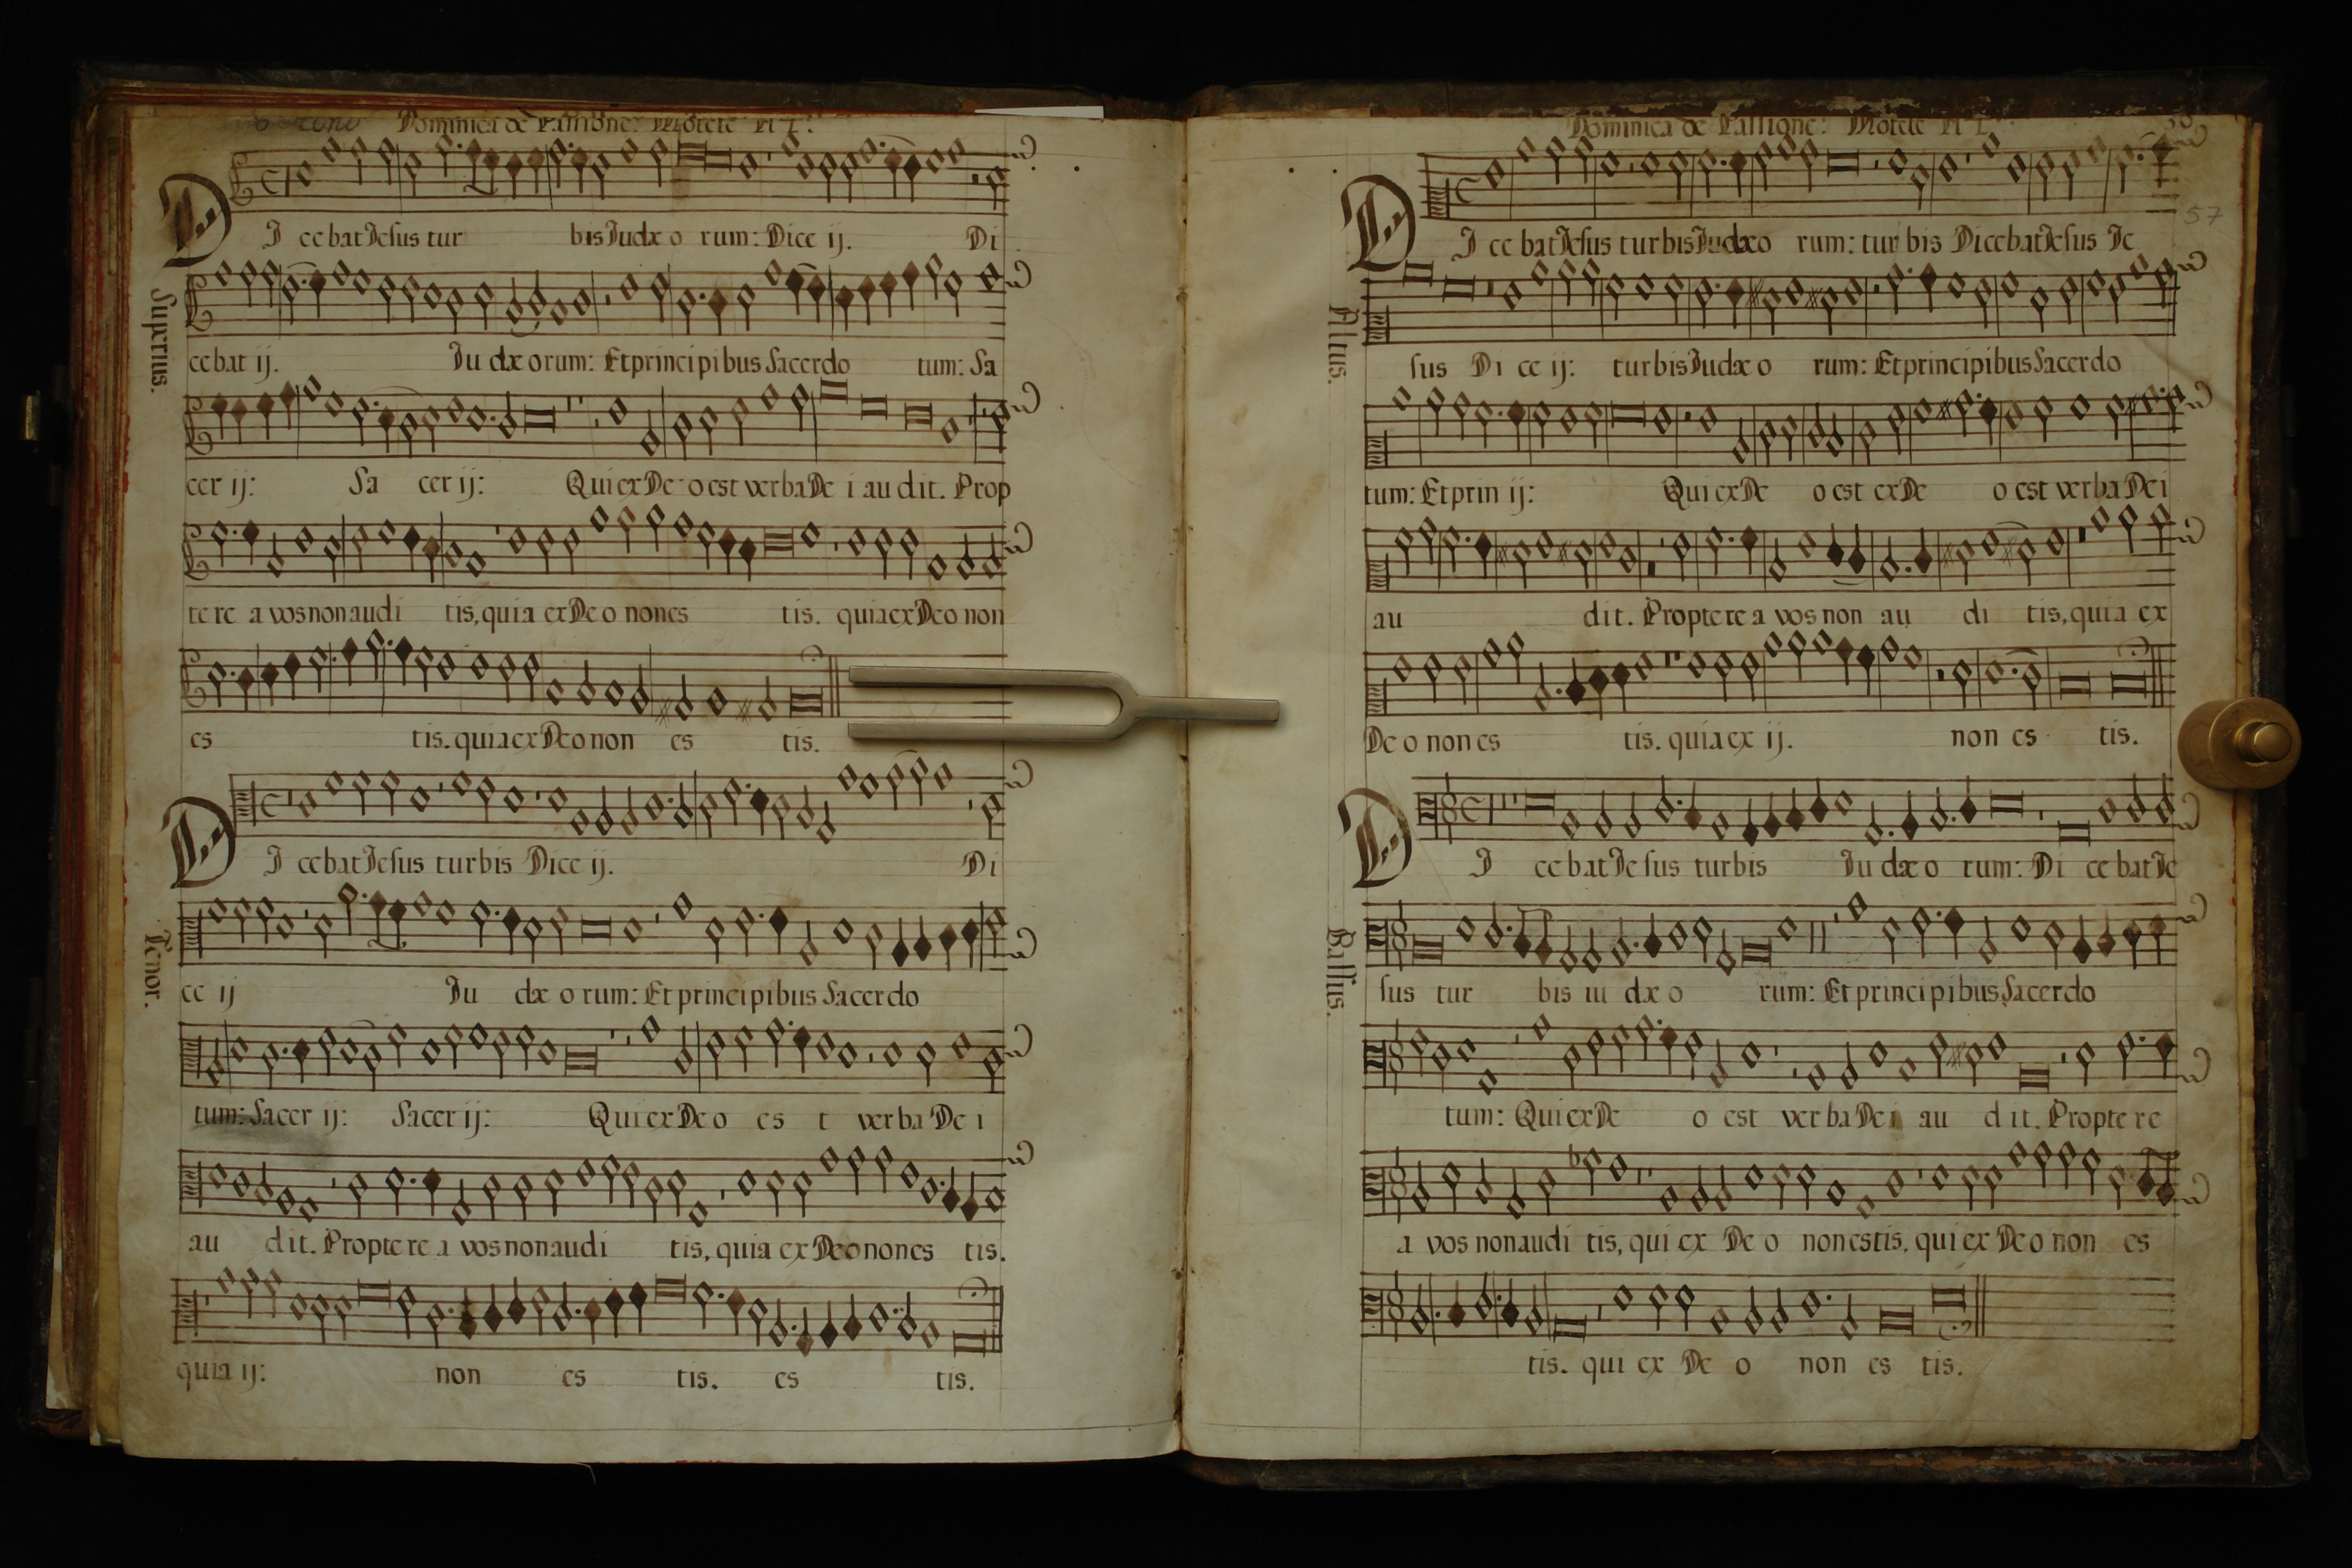 Dominica de Passione. Motete A 4.
DI cebat Jesus tur bis Judæ o rum: Dice ij. Di
Superius.
cebat ij. Ju dæ orum: Et principibus Sacerdo tum: Sa
cer ij: Sa cer ij: Qui ex De o est verba De i au dit. Prop
te re a vos non audi tis, quia ex De o non es tis. quia ex Deo non
es tis. quia ex Deo non es tis.
DI cebat Jesus turbis Dice ij. Di
Tenor.
ce ij Ju dæ o rum: Et principibus Sacerdo
tum: Sacer ij: Sacer ij: Qui ex De o es t verba De i
au dit. Propte re a vos non audi tis, quia ex Deo non es tis.
quia ij: non es tis. es tis.
Dominica de Passione: Motete A 4.
57
DI ce bat Jesus turbis Judæo rum: tur bis Dicebat Jesus Je
Altus.
sus Di ce ij: turbis Judæ o rum: Et principibus Sacerdo
tum: Et prin ij: Qui ex De o est ex De o est verba Dei
au dit. Propte re a vos non au di tis, quia ex
De o non es tis. quia ex ij. non es tis.
DI ce bat Je sus turbis Ju dæ o rum: Di ce bat Je
Bassus.
sus tur bis iu dæ o rum: Et principibus Sacerdo
tum: Qui ex De o est verba Dei au dit. Propte re
a vos non audi tis, qui ex De o non estis, qui ex Deo non es
tis. qui ex De o non es tis.